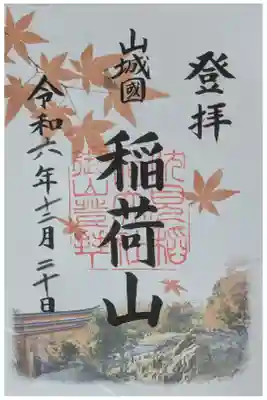 登拝
山城國
稲荷山
令和六年十二月二十日